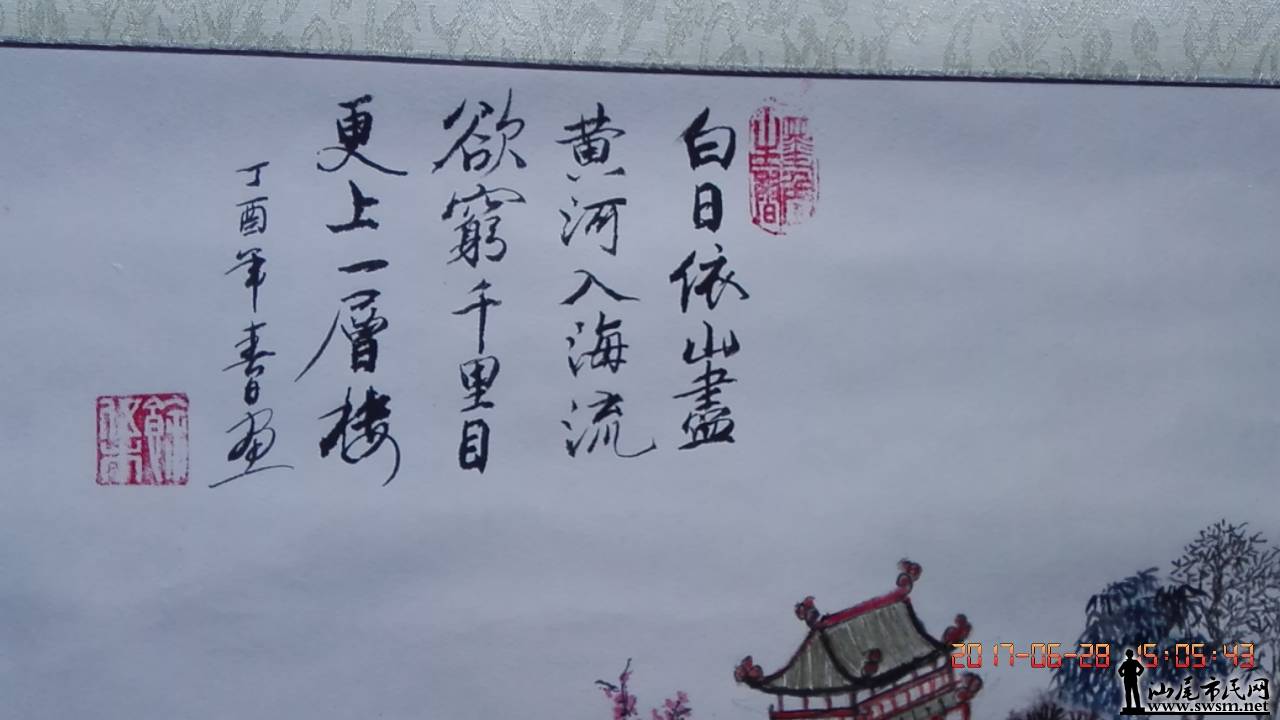 白日依山盡
黄河入海流
欲窮千里目
更上一層楼
丁酉年春画
2017-06-28 15:05:43
汕尾市民网
www.swsm.net